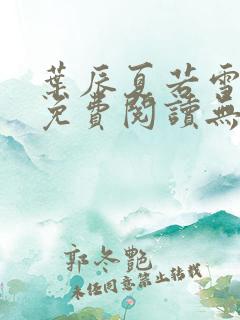 葉辰夏若雪
免費閱讀無
郭冬艷
未任同意禁止轉載